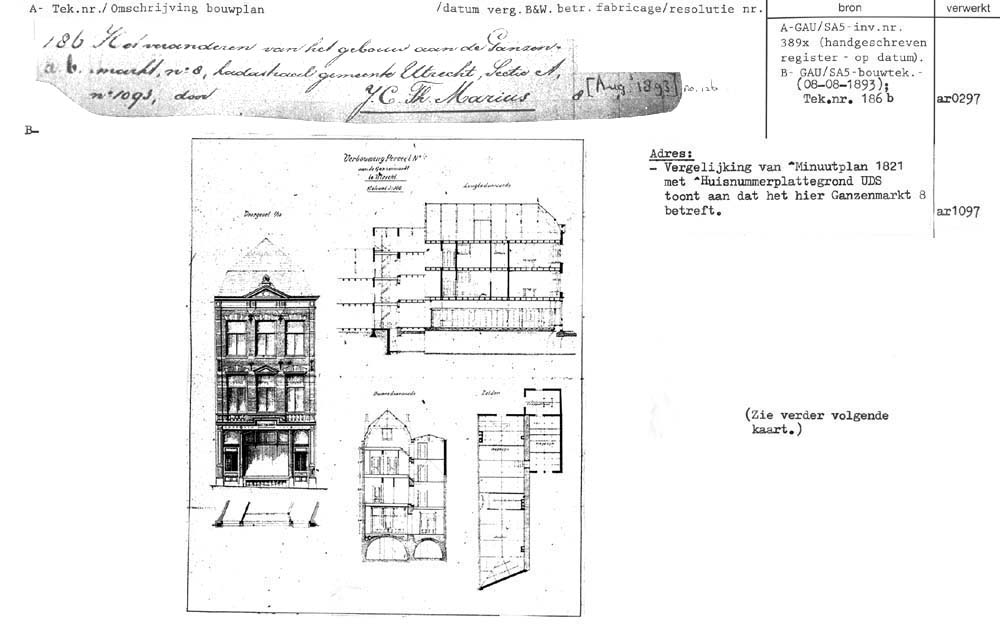 A- Tek.nr./ Omschrijving bouwplan /datum verg.B&W. betr. fabricage/resolutie nr.
bron
verwerkt
186 Het veranderen van het gebouw aan de Ganzen-
b. markt, no 8, kadastraal gemeente Utrecht, Sectie A,
no 1093, door J. C. Th. Marius 8 [Aug. 1893] no. 126
A-GAU/SA5-inv.nr.
389x (handgeschreven
register - op datum).
B- GAU/SA5-bouwtek.-
(08-08-1893);
Tek.nr. 186 b
ar0297
B-
Adres:
- Vergelijking van ^Minuutplan 1821
met ^Huisnummerplattegrond UDS
toont aan dat het hier Ganzenmarkt 8
betreft.
ar1097
Verbouwing Perceel No
aan de Ganzenmarkt
te Utrecht
Voorgevel
Langte doorsnede
Dwarsdoorsnede
(Zie verder volgende
kaart.)